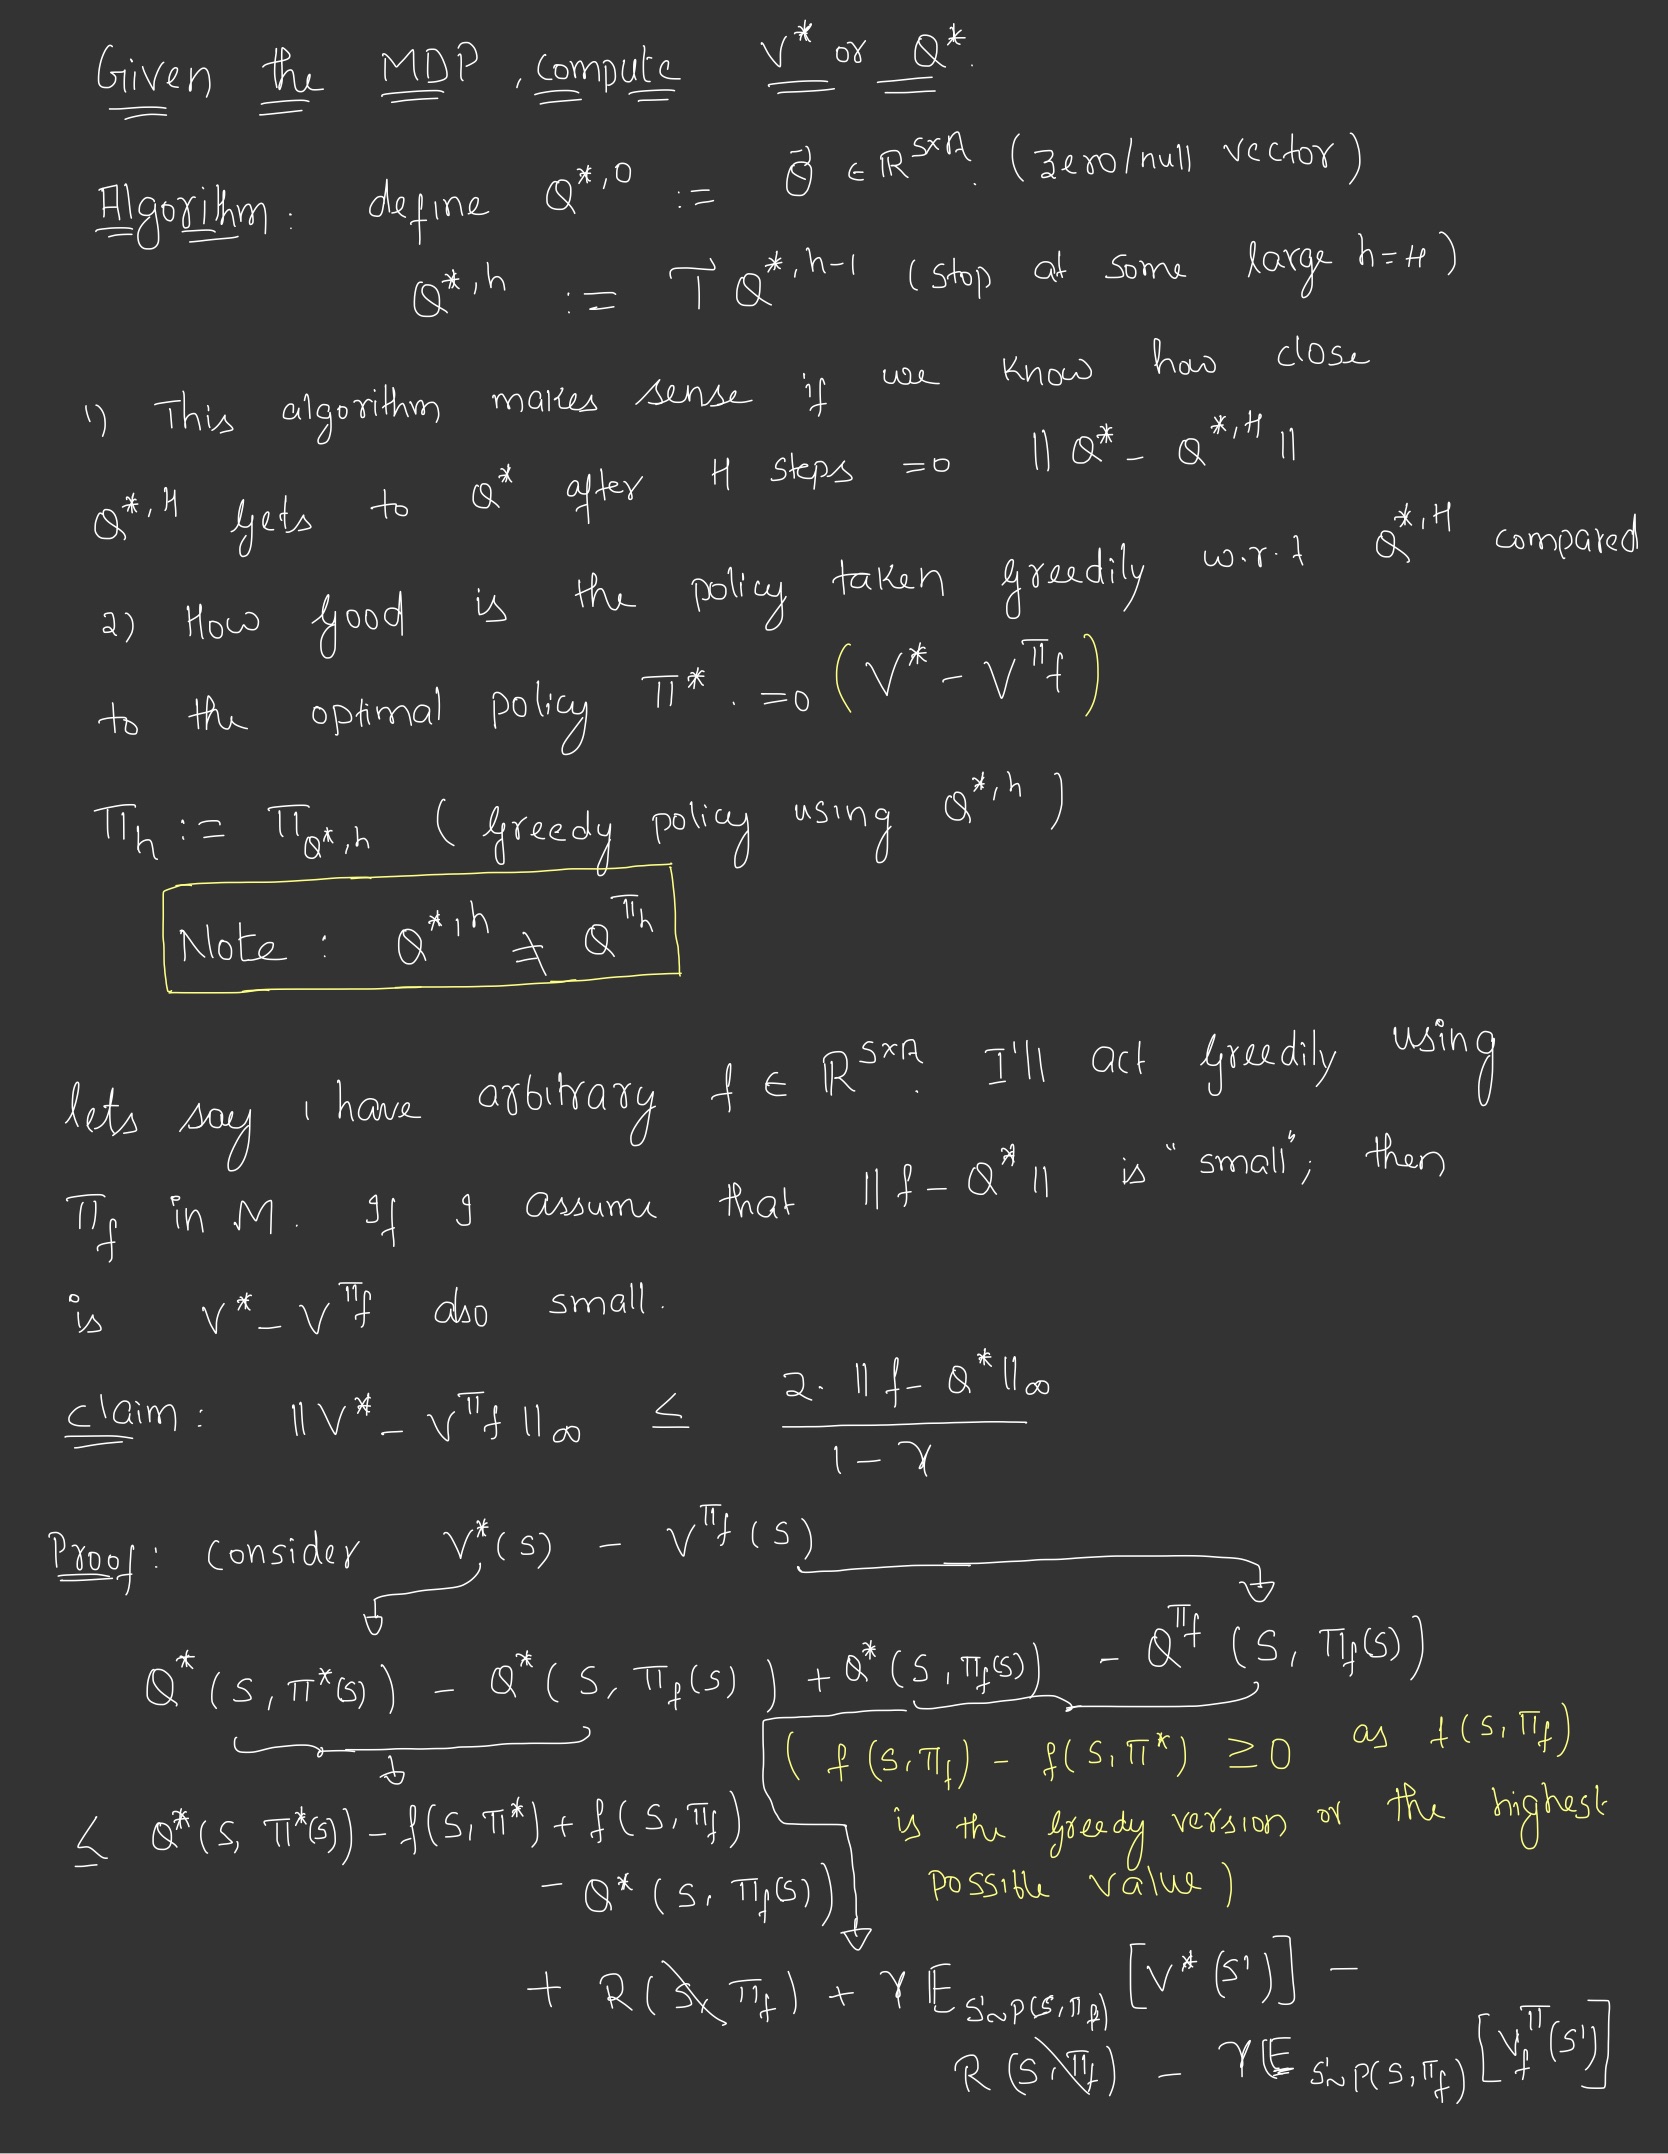 Given the MDP, compute V* or Q*.
Algorithm: define Q^{*,0} := \vec{0} ∈ ℝ^{S×A}. (zero/null vector)
Q^{*,h} := T Q^{*,h-1} (stop at some large h=H)
1) This algorithm makes sense if we know how close
Q^{*,H} gets to Q* after H steps ⇒ ||Q* - Q^{*,H}||
2) How good is the policy taken greedily w.r.t Q^{*,H} compared
to the optimal policy π*. ⇒ (V* - V^{π_f})
π_h := π_{Q^{*,h}} (greedy policy using Q^{*,h})
Note: Q^{*,h} ≠ Q^{π_h}
lets say i have arbitrary f ∈ ℝ^{S×A}. I'll act greedily using
π_f in M. If I assume that ||f - Q*|| is "small"; then
is V* - V^{π_f} also small.
claim: ||V* - V^{π_f}||_∞ ≤ \frac{2. ||f - Q*||_∞}{1-γ}
Proof: consider V*(s) - V^{π_f}(s)
Q*(s, π*(s)) - Q*(s, π_f(s)) + Q*(s, π_f(s)) - Q^{π_f}(s, π_f(s))
(f(s, π_f) - f(s, π*) ≥ 0 as f(s, π_f)
is the greedy version or the highest
possible value)
≤ Q*(s, π*(s)) - f(s, π*) + f(s, π_f)
- Q*(s, π_f(s))
+ R(s, π_f) + γ𝔼_{s'~P(s,π_f)}[V*(s')] -
R(s, π_f) - γ𝔼_{s'~P(s,π_f)}[V_f^π(s')]